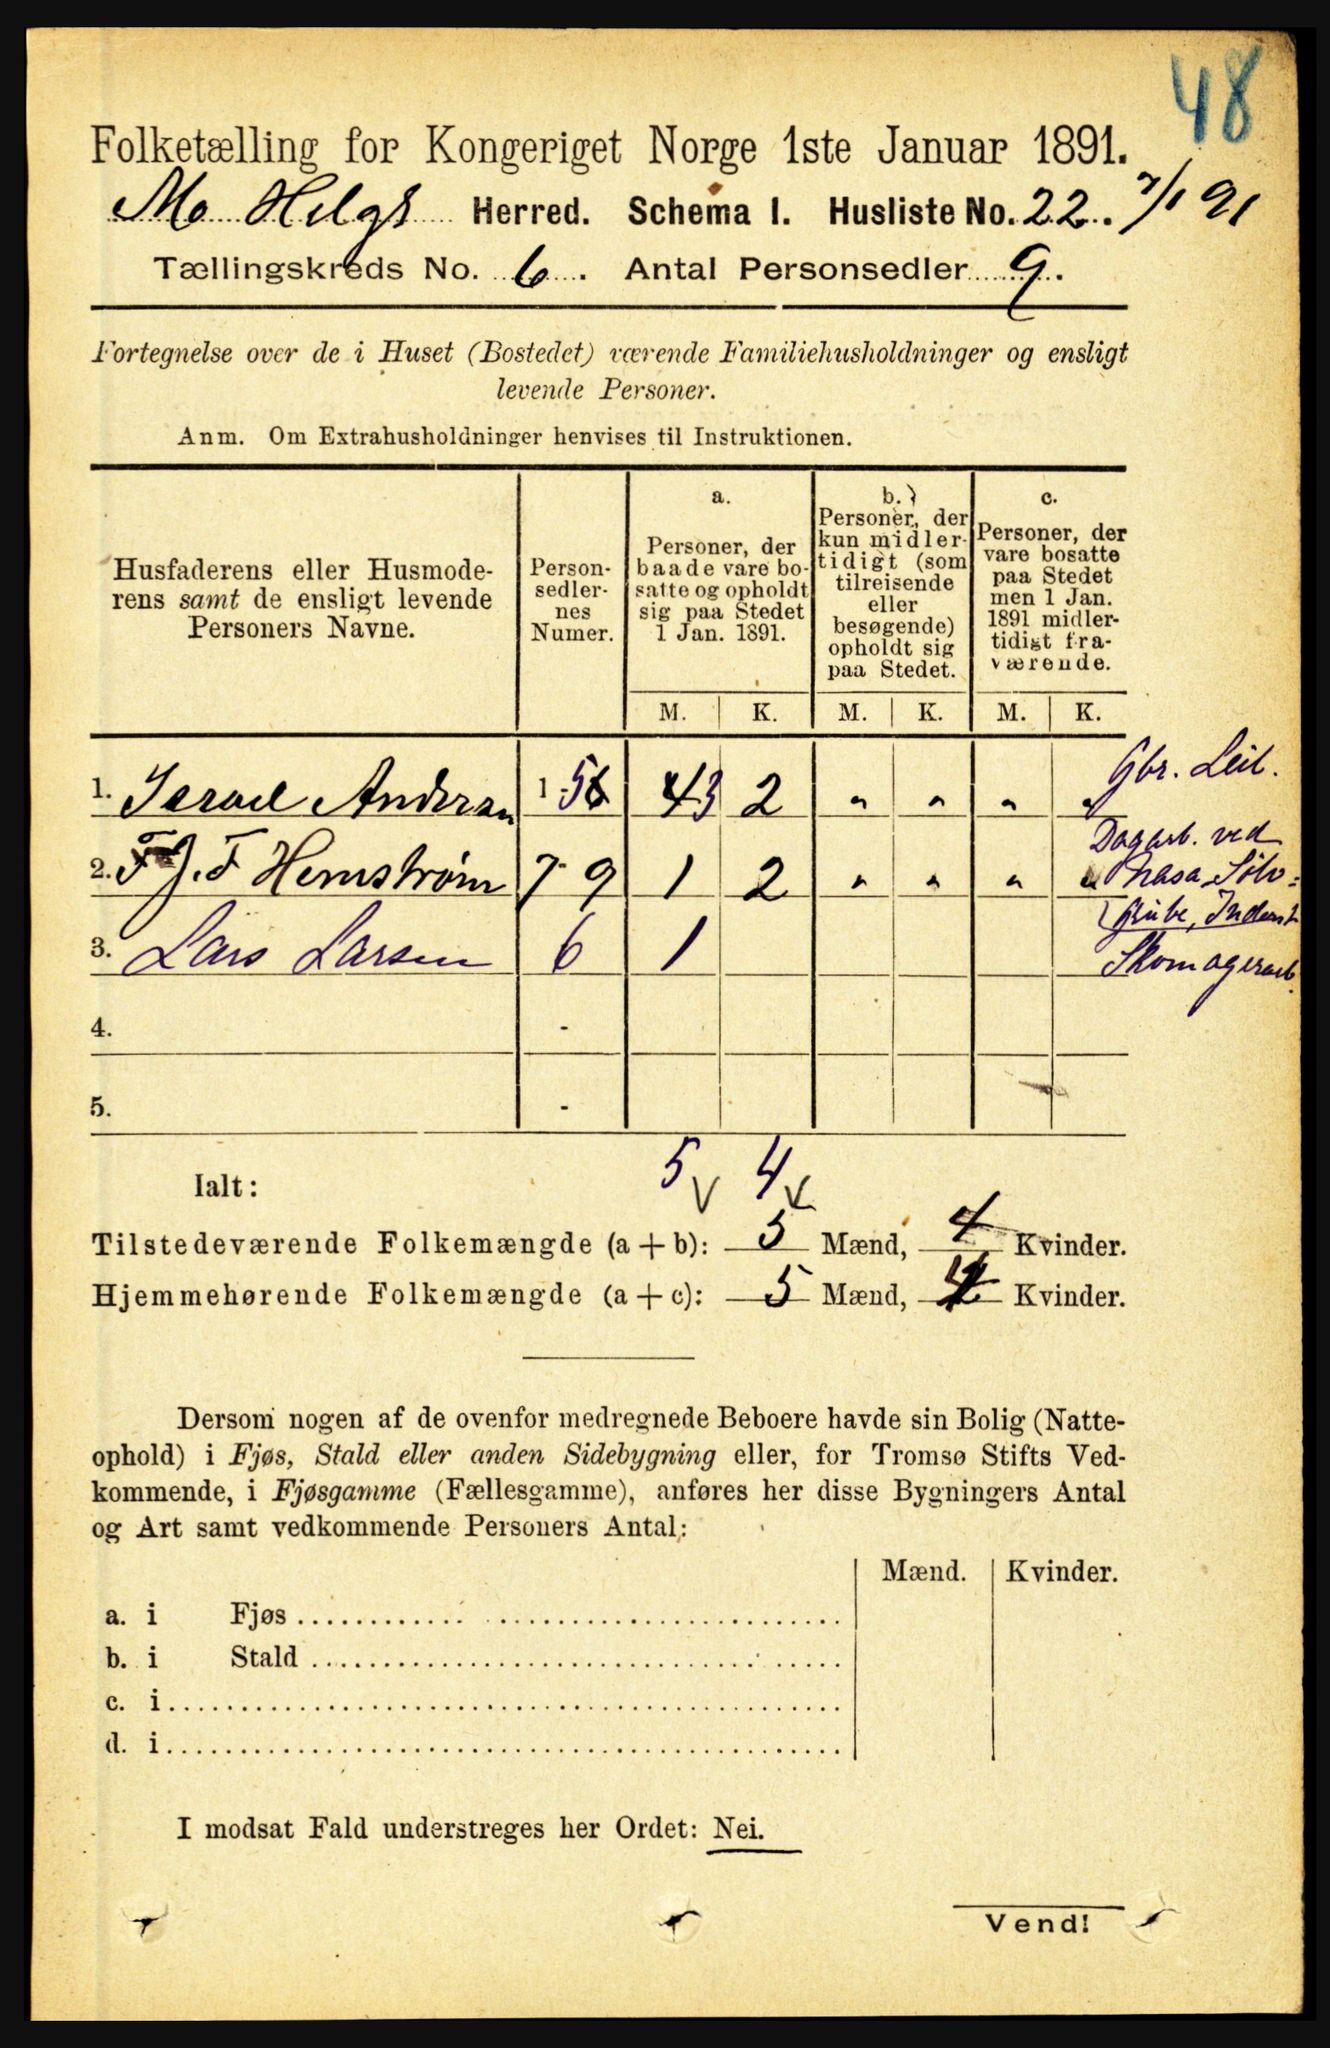 48
Folketælling for Kongeriget Norge 1ste Januar 1891.
Mo Helgl Herred. Schema I. Husliste No. 22. 7/1 91
Tællingskreds No. 6. Antal Personsedler 9.
Fortegnelse over de i Huset (Bostedet) værende Familiehusholdninger og ensligt
levende Personer.
Anm. Om Extrahusholdninger henvises til Instruktionen.
Husfaderens eller Husmode-
rens samt de ensligt levende
Personers Navne.
Person-
sedler-
nes
Numer.
a.
Personer, der
baade vare bo-
satte og opholdt
sig paa Stedet
1 Jan. 1891.
b.
Personer, der
kun midler-
tidigt (som
tilreisende
eller
besøgende)
opholdt sig
paa Stedet.
c.
Personer, der
vare bosatte
paa Stedet
men 1 Jan.
1891 midler-
tidigt fra-
værende.
M. K. M. K. M. K.
1. Israel Andersen 1 - 5 3 2 " " " " Gbr. Leil.
2. F. J. F Hemstrøm 7 - 9 1 2 " " " " Dagarb. ved
Nasa Sölv=
Grube, Inderst
3. Lars Larsen 6 1 Skomagerarb.
4. -
5. -
Ialt: 5 4
Tilstedeværende Folkemængde (a + b): 5 Mænd, 4 Kvinder.
Hjemmehørende Folkemængde (a + c): 5 Mænd, 4 Kvinder.
Dersom nogen af de ovenfor medregnede Beboere havde sin Bolig (Natte-
ophold) i Fjøs, Stald eller anden Sidebygning eller, for Tromsø Stifts Ved-
kommende, i Fjøsgamme (Fællesgamme), anføres her disse Bygningers Antal
og Art samt vedkommende Personers Antal:
Mænd. Kvinder.
a. i Fjøs
b. i Stald
c. i
d. i
I modsat Fald understreges her Ordet: Nei.
Vend!